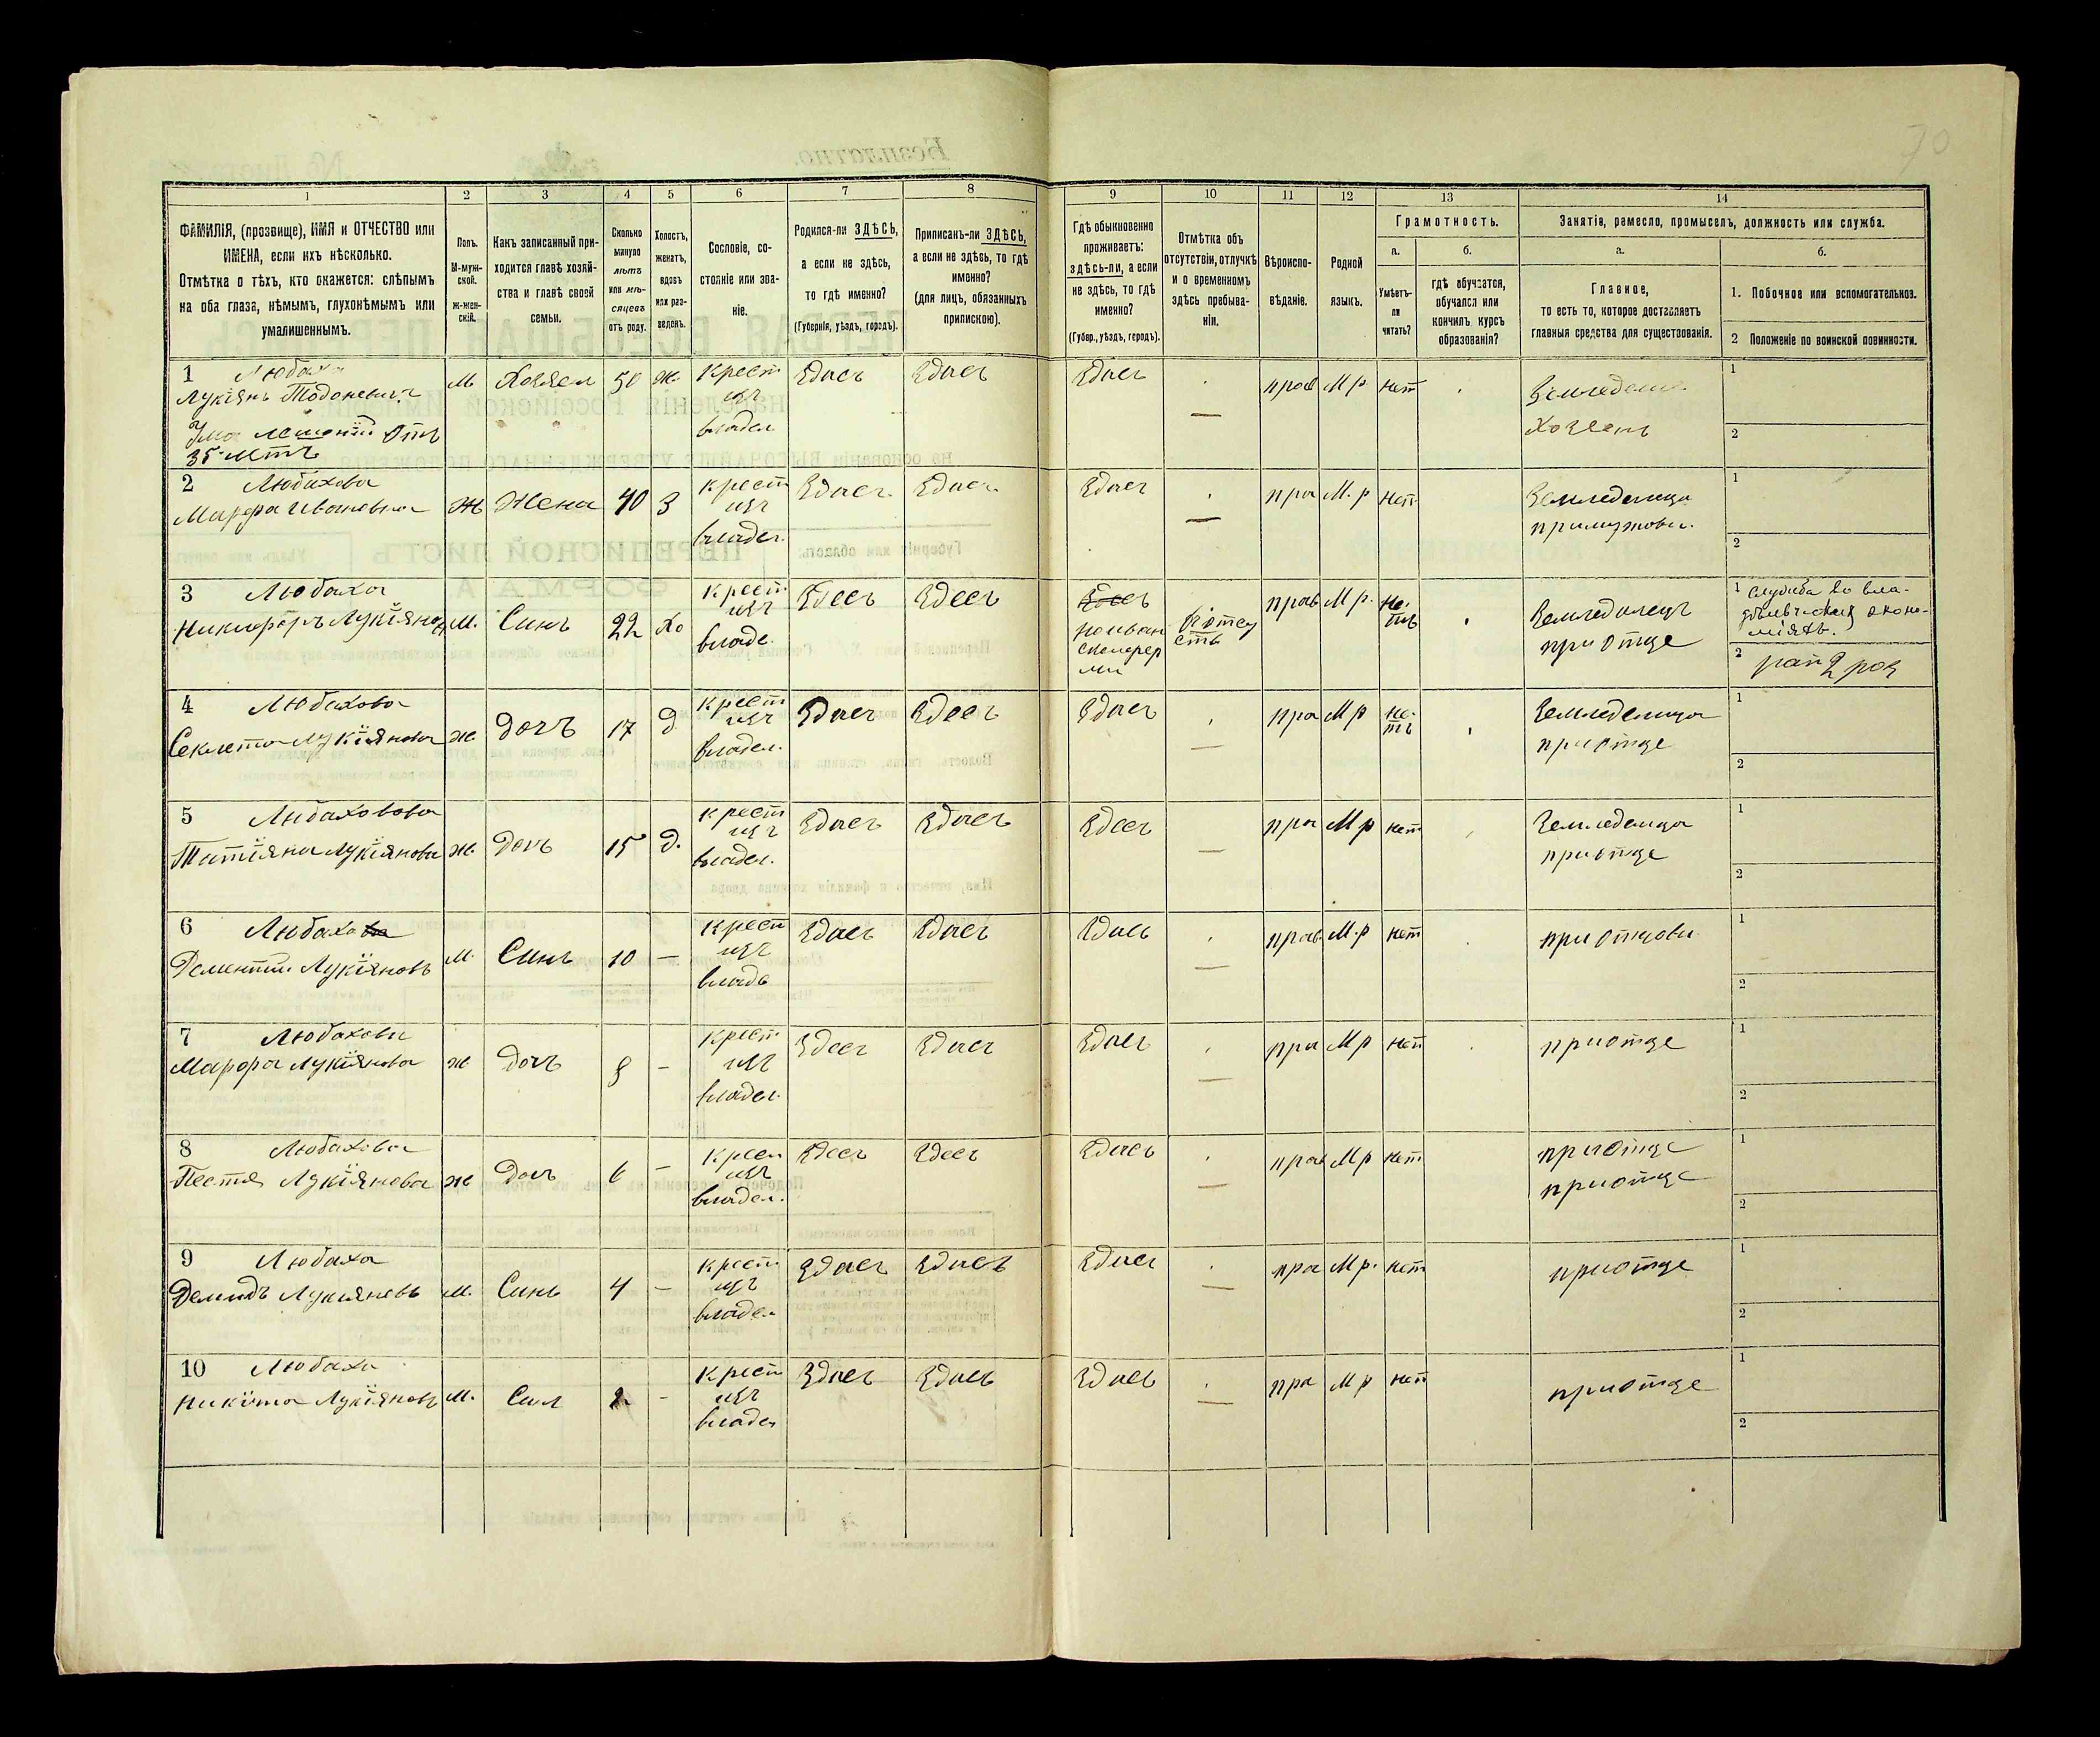 70
1
2
3
4
5
6
7
8
9
10
11
12
13
14
ФАМИЛІЯ, (прозвище), ИМЯ и ОТЧЕСТВО или
ИМЕНА, если ихъ нѣсколько.
Отмѣтка о тѣхъ, кто окажется: слѣпымъ
на оба глаза, нѣмымъ, глухонѣмымъ или
умалишеннымъ.
Полъ.
М-муж-
ской.
Ж-жен-
скій.
Какъ записанный при-
ходится главѣ хозяй-
ства и главѣ своей
семьи.
Сколько
минуло
лѣтъ
или мѣ-
сяцевъ
отъ роду.
Холостъ,
женатъ,
вдовъ
или раз-
веденъ.
Сословіе, со-
стояніе или зва-
ніе.
Родился-ли ЗДѢСЬ,
а если не здѣсь,
то гдѣ именно?
(Губернія, уѣздъ, городъ).
Приписанъ-ли ЗДѢСЬ,
а если не здѣсь, то гдѣ
именно?
(для лицъ, обязанныхъ
припискою).
Гдѣ обыкновенно
проживаетъ:
здѣсь-ли, а если
не здѣсь, то гдѣ
именно?
(Губер., уѣздъ, городъ).
Отмѣтка объ
отсутствіи, отлучкѣ
и о временномъ
здѣсь пребыва-
ніи.
Вѣроиспо-
вѣданіе.
Родной
языкъ.
Грамотность.
а.
Умѣетъ-
ли
читать?
б.
гдѣ обучается,
обучался или
кончилъ курсъ
образованія?
Занятія, ремесло, промыселъ, должность или служба.
а.
Главное,
то есть то, которое доставляетъ
главныя средства для существованія.
б.
1. Побочное или вспомогательное.
2 Положеніе по воинской повинности.
1 Любаха
Лукіянъ Тодоневичъ
35 летъ
м. Хозяел 50 ж. крест изъ владел Здлсъ Здлсъ Здлсъ — прав М р. нет Земледел Хозяенъ 1 2
2 Любахова
Марфа Ивановна ж Жена 40 З крест изъ владел. Здлсъ Здлсъ Здлсъ — пра М. р нет Земледелица примужови. 1 2
3 Любаха
Никифоръ Лукіяновъ м. Синъ 22 Хо крест изъ владе. Здесъ Здесъ прав М р. не-тъ Земледилецъ при отце
1 служба во вла-
дѣльческих эконо-
міяхъ.
2
4 Любахова
Секлета Лукіянова ж. дочъ 17 д крест изъ владел. Здлсъ Здесъ Здлсъ — пра М р не-тъ Земледелица при отце 1 2
5 Любаховова
Татіяна Лукіянова ж. Дочъ 15 д. крест изъ владел. Здлсъ Здлсъ Здесъ — пра М р нет Земледелица при отце 1 2
6 Любахова
Дементий Лукіяновъ м. Синъ 10 — крест изъ владе Здлсъ Здлсъ Здлсь — прав. М. р нет при отцови 1 2
7 Любахова
Марфа Лукіянова ж дочъ 8 - крест изъ владел. Здесъ Здлсъ Здлсъ — пра М р нет при отце 1 2
8 Любахова
Пестя Лукіянова ж Дочъ 6 — крест изъ владел. Здесъ Здесъ Здлсь — прав М р нет при отце при отце 1 2
9 Любаха
Демидъ Лукияновъ м. Синъ 4 — крест изъ владел Здлсъ Здлсъ Здлсъ — пра М р. нет при отце 1 2
10 Любаха
Никита Лукіяновъ м. Син 2 - крест изъ владел Здлсъ Здлсъ Здлсь — пра М р нет при отце 1 2